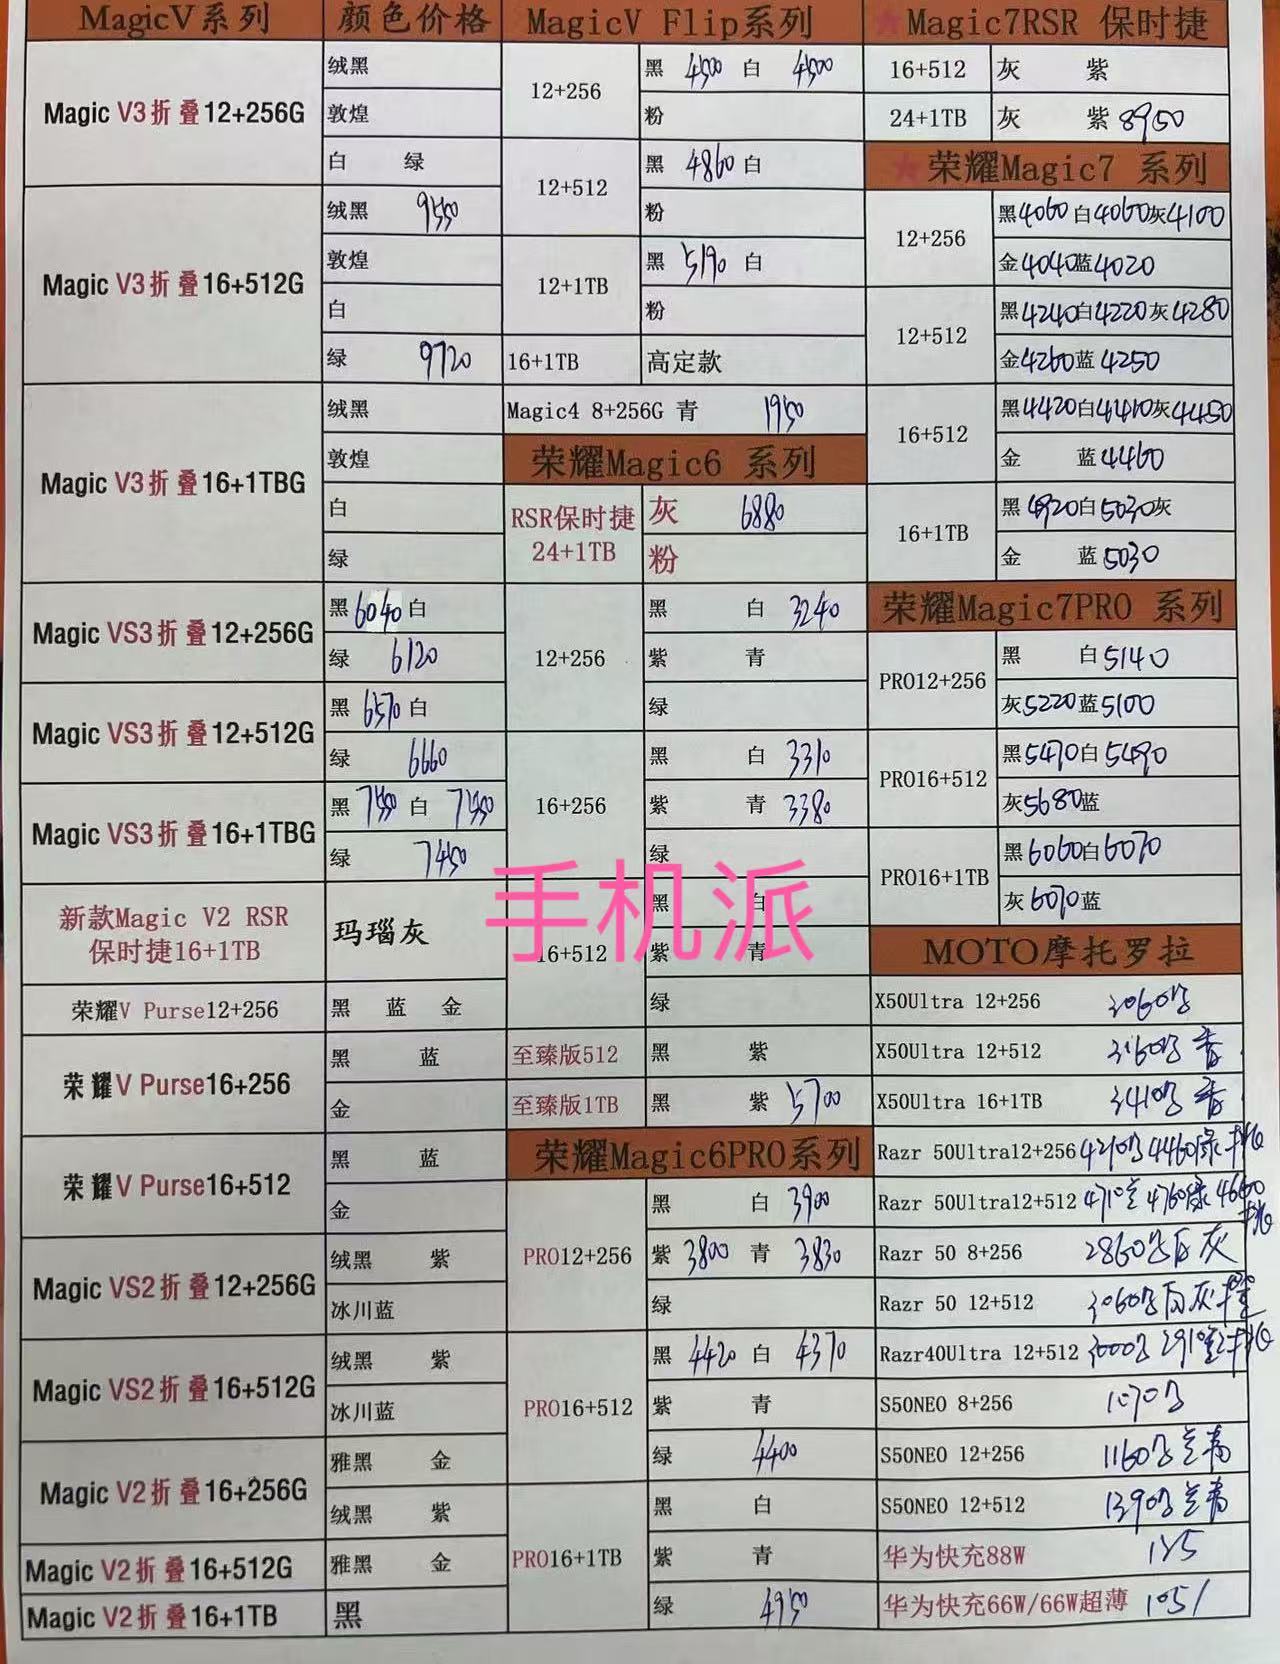 MagicV系列 颜色价格
Magic V3折叠12+256G 绒黑
敦煌
白 绿
Magic V3折叠16+512G 绒黑 9550
敦煌
白
绿 9720
Magic V3折叠16+1TBG 绒黑
敦煌
白
绿
Magic VS3折叠12+256G 黑6040白
绿 6120
Magic VS3折叠12+512G 黑6570白
绿 6660
Magic VS3折叠16+1TBG 黑 白
绿 7450
新款Magic V2 RSR
保时捷16+1TB 玛瑙灰
荣耀V Purse12+256 黑 蓝 金
荣耀V Purse16+256 黑 蓝
金
荣耀V Purse16+512 黑 蓝
金
Magic VS2折叠12+256G 绒黑 紫
冰川蓝
Magic VS2折叠16+512G 绒黑 紫
冰川蓝
Magic V2折叠16+256G 雅黑 金
绒黑 紫
Magic V2折叠16+512G 雅黑 金
Magic V2折叠16+1TB 黑
MagicV Flip系列
12+256 黑 4500 白 4500
粉
12+512 黑 4860 白
粉
12+1TB 黑 5190 白
粉
16+1TB 高定款
Magic4 8+256G 青 1950
荣耀Magic6 系列
RSR保时捷
24+1TB 灰 6880
粉
12+256 黑 白 3240
紫 青
绿
16+256 黑 白 3310
紫 青 3380
绿
16+512 黑 白
紫 青
绿
至臻版512 黑 紫
至臻版1TB 黑 紫 5700
荣耀Magic6PRO系列
PRO12+256 黑 白 3900
紫 3800 青 3830
绿
PRO16+512 黑 4420 白 4370
紫 青
绿 4400
PRO16+1TB 黑 白
紫 青
绿 4950
★Magic7RSR 保时捷
16+512 灰 紫
24+1TB 灰 紫 8950
★荣耀Magic7 系列
12+256 黑4060白4060灰4100
金4040蓝4020
12+512 黑4240白4220灰4280
金4260蓝4250
16+512 黑4420白4410灰4450
金 蓝4460
16+1TB 黑4920白5030灰
金 蓝5030
荣耀Magic7PRO 系列
PRO12+256 黑 白5140
灰5220蓝5100
PRO16+512 黑5470白5490
灰5680蓝
PRO16+1TB 黑6060白6070
灰6070蓝
MOTO摩托罗拉
X50Ultra 12+256 3060
X50Ultra 12+512 3160
X50Ultra 16+1TB 3410
Razr 50Ultra12+256 4210 4460绿
Razr 50Ultra12+512 4710 4760绿 4660
Razr 50 8+256 2860 白 灰
Razr 50 12+512 3060 白 灰
Razr40Ultra 12+512 3000 2910
S50NEO 8+256 1070
S50NEO 12+256 1160
S50NEO 12+512 1390
华为快充88W
华为快充66W/66W超薄 105/
手机派